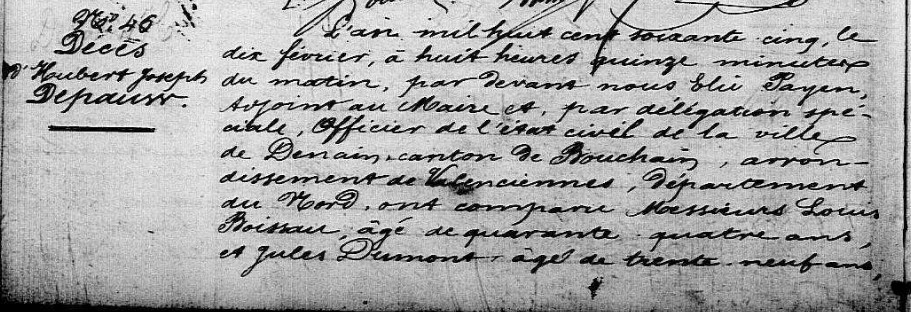 N° 46
Décès
d'Hubert Joseph
Depauw.
L'an mil huit cent soixante cinq, le
dix février, à huit heures quinze minutes
du matin, par devant nous Elie Payen,
Adjoint au Maire et, par délégation spé-
ciale, Officier de l'état civil de la ville
de Denain, canton de Bouchain, arron-
dissement de Valenciennes, Département
du Nord, ont comparu Messieurs Louis
Boissau, âgé de quarante-quatre ans,
et Jules Dumont, âgé de trente-neuf ans,